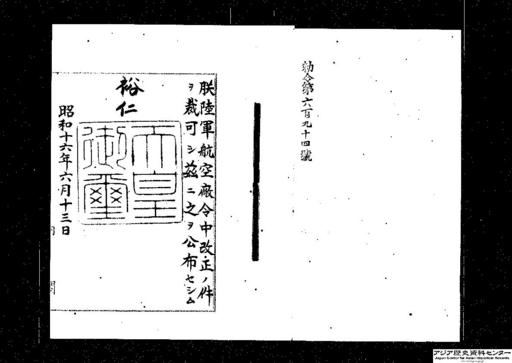 勅令第六百九十四號
朕陸軍航空廠令中改正ノ件
ヲ裁可シ茲ニ之ヲ公布セシム
裕仁
天皇
御璽
昭和十六年六月十三日
アジア歴史資料センター
Japan Center for Asian Historical Records